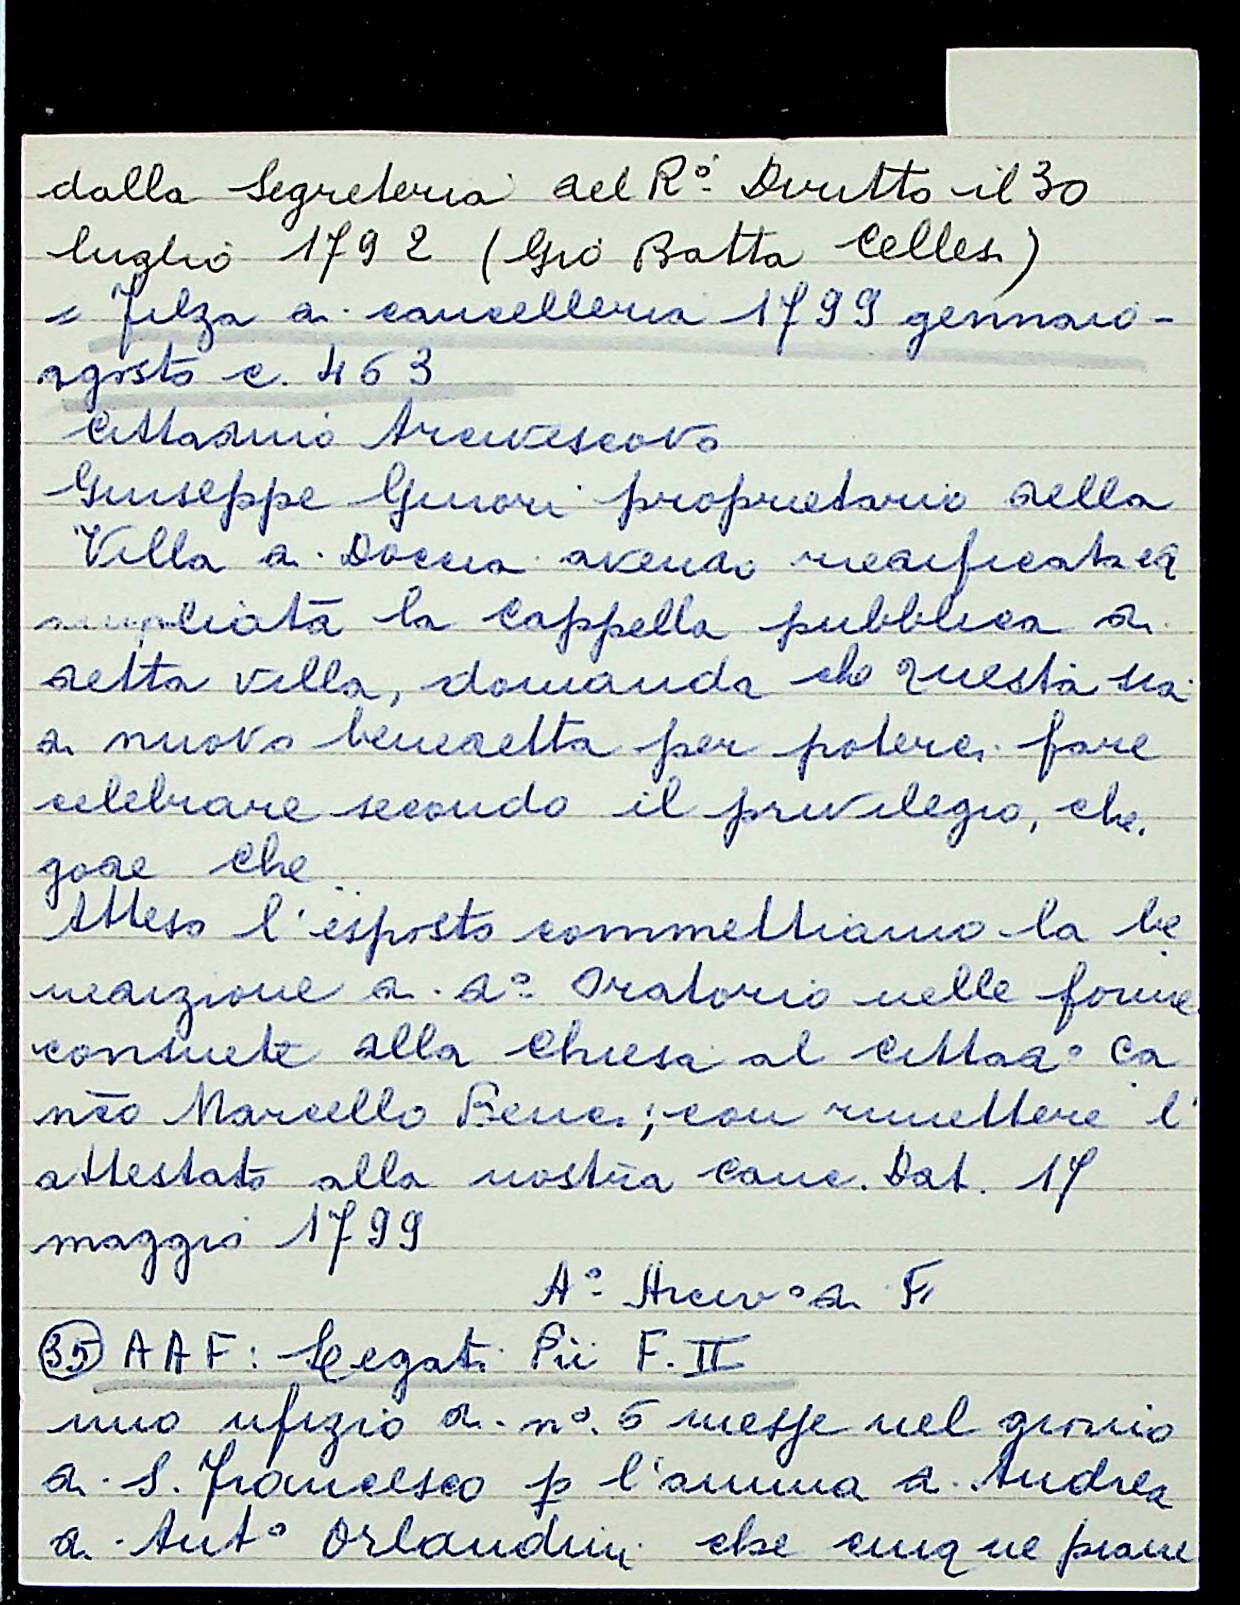 dalla Segreteria del R.º Diritto il 30
luglio 1792 (Gio Batta Cellesi)
= Filza di cancelleria 1799 gennaio-
agosto c. 463
Cittadino Arcivescovo
Giuseppe Ginori proprietario della
Villa di Doccia avendo riedificata ed
ampliata la Cappella pubblica di
detta villa, domanda che questa sia
di nuovo benedetta per poterci fare
celebrare secondo il privilegio, che
gode che
Atteso l'esposto commettiamo la be
nedizione di d.º Oratorio nelle forme
consuete alla Chiesa al Cittad.º Ca
nco Marcello Benci; con rimettere l'
attestato alla nostra canc. Dat. 17
maggio 1799
A.º Arciv.º di F.
(35) AAF: Legati Pii F. II
uno ufizio di n.º 6 messe nel giorno
di S. Francesco p l'anima di Andrea
di Ant.º Orlandini che cinque piane